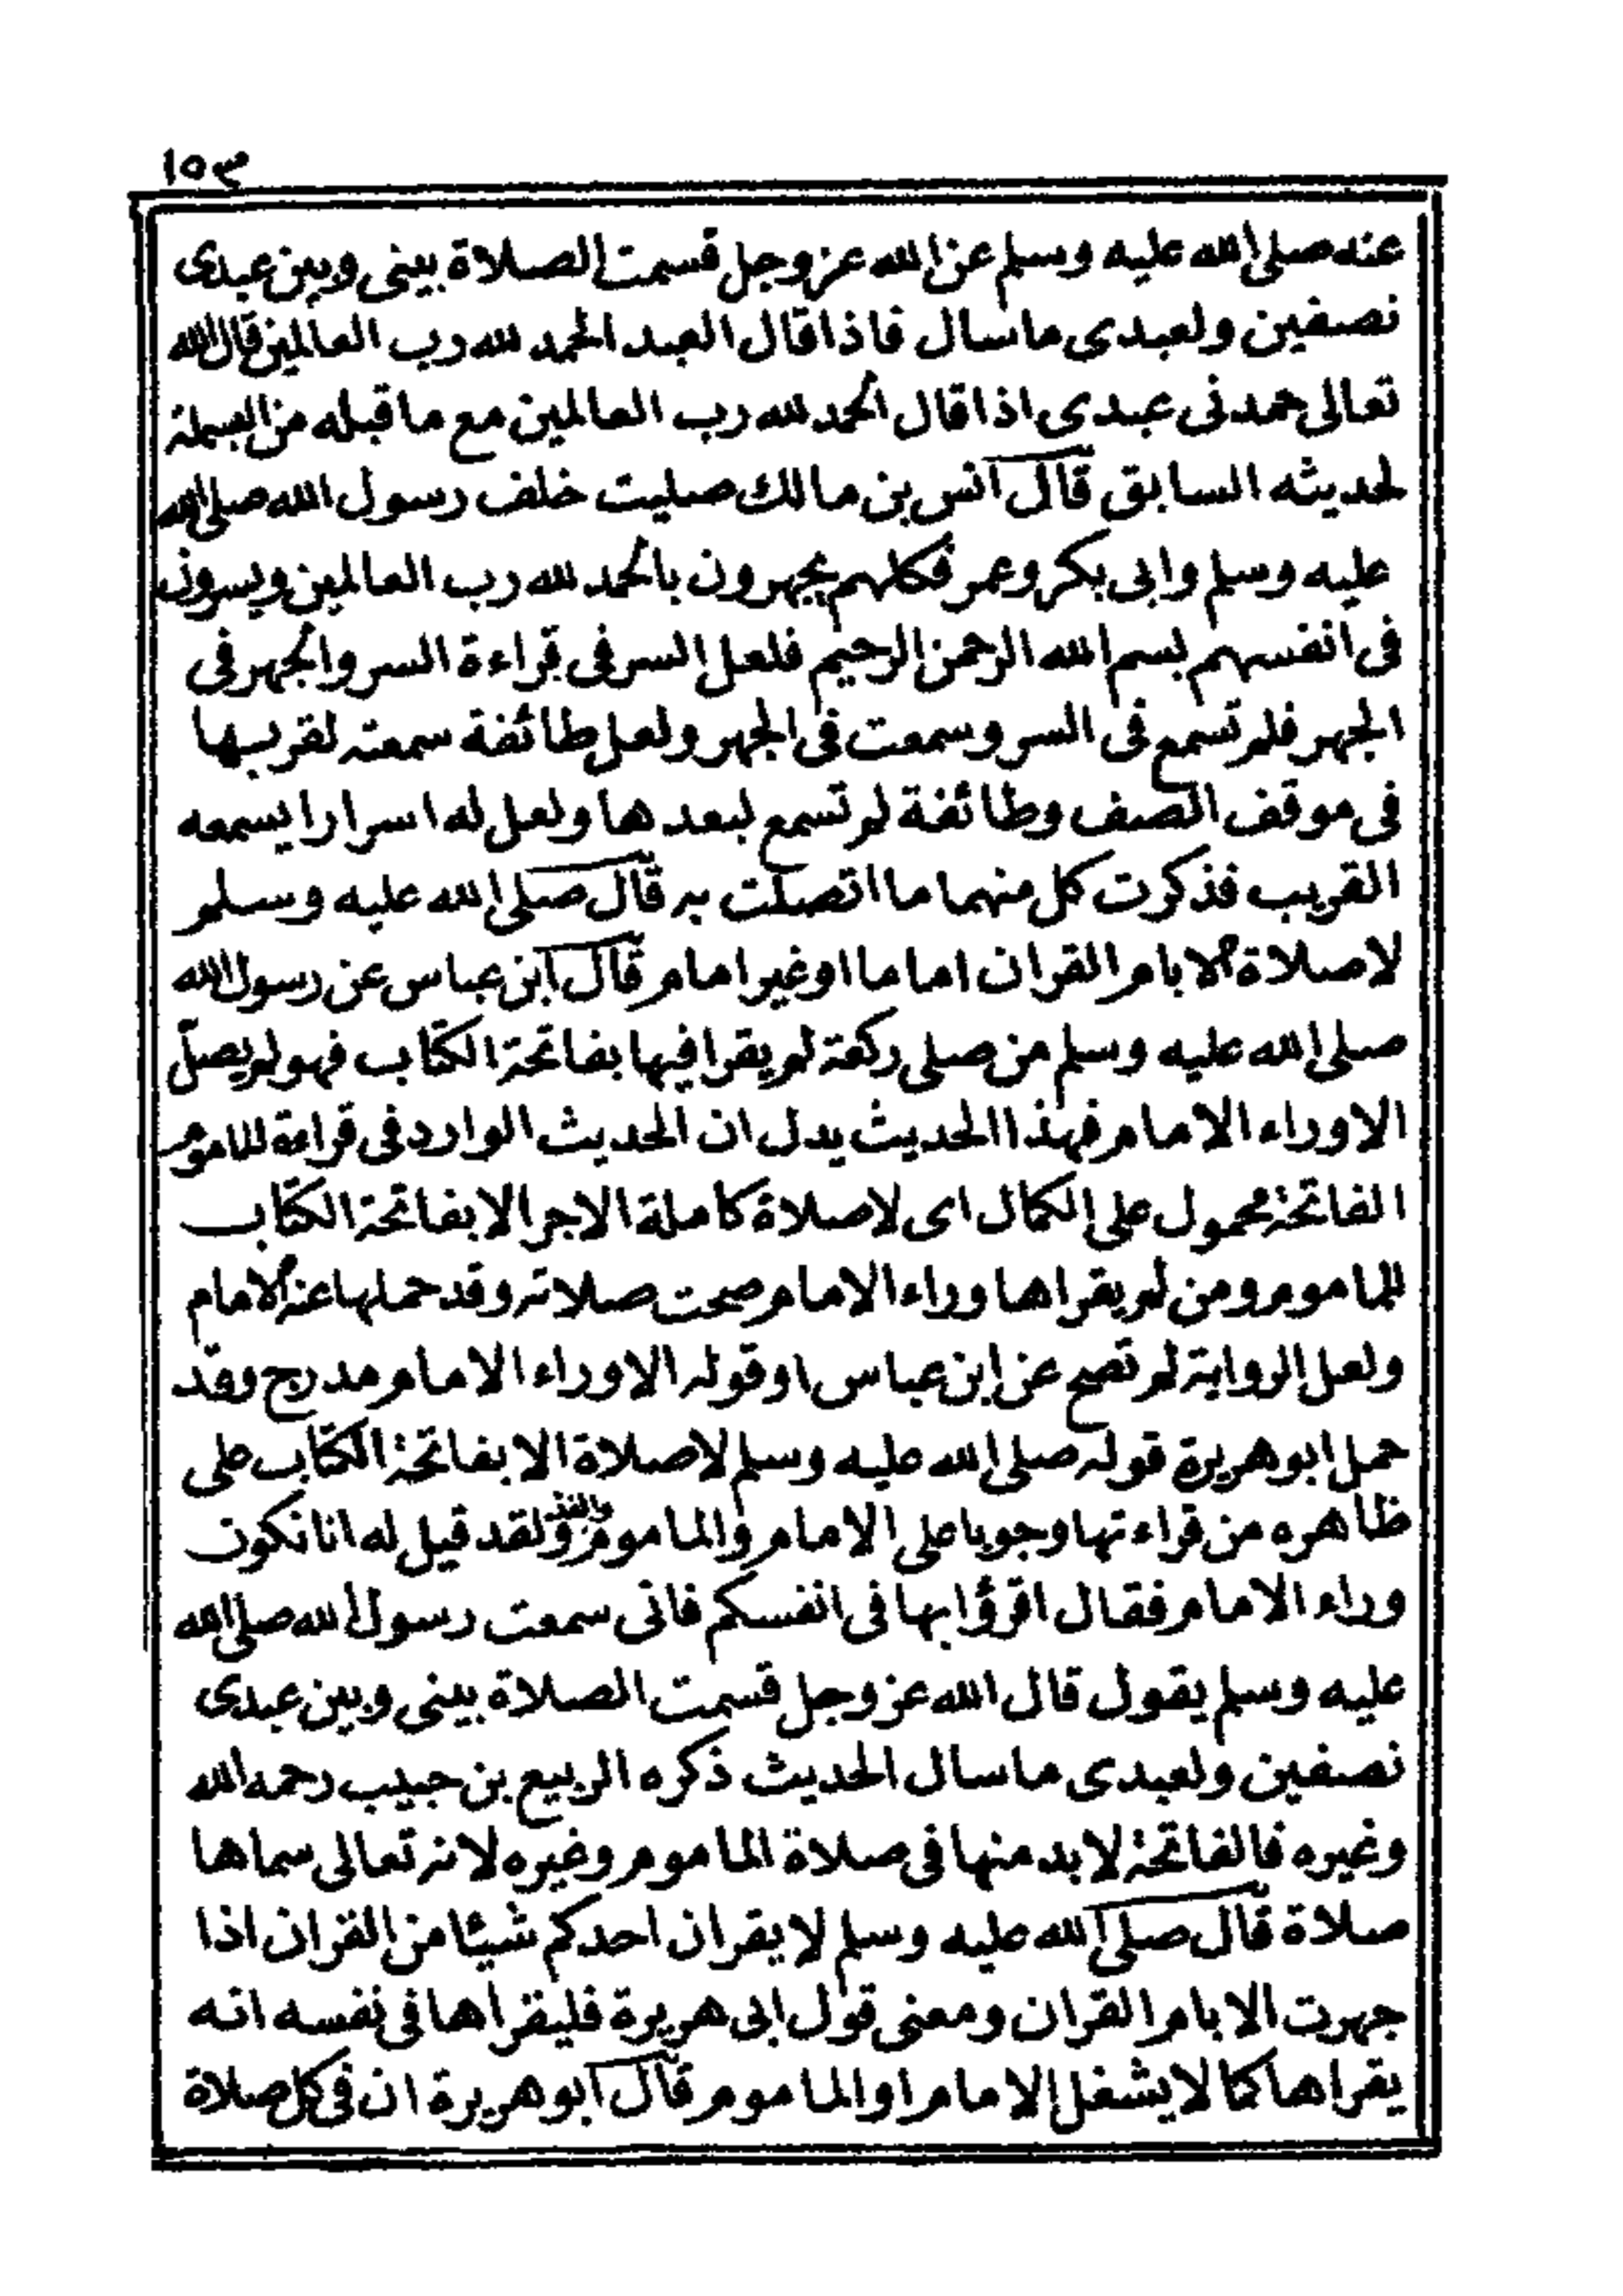 ١٥٣
عنه صلى الله عليه وسلم عن الله عز وجل قسمت الصلاة بينى وبين عبدى
نصفين ولعبدى ما سال فاذا قال العبد الحمد لله رب العالمين قال الله
تعالى حمدنى عبدى اذا قال الحمد لله رب العالمين مع ما قبله من البسملة
لحديثه السابق قال انس بن مالك صليت خلف رسول الله صلى الله
عليه وسلم وابى بكر وعمر فكلهم يجهرون بالحمد لله رب العالمين ويسرون
فى انفسهم بسم الله الرحمن الرحيم فلعل السر فى قراءة السر والجهر فى
الجهر فلم تسمع فى السر وسمعت فى الجهر ولعل طائفة سمعته لقربها
فى موقف الصف وطائفة لم تسمع لبعدها ولعل له اسرارا يسمعه
القريب فذكرت كل منهما ما اتصلت به قال صلى الله عليه وسلم
لا صلاة الا بام القران اماما او غير امام قال ابن عباس عن رسول الله
صلى الله عليه وسلم من صلى ركعة لم يقرا فيها بفاتحة الكتاب فهو لم يصل
الا وراء الامام فهذا الحديث يدل ان الحديث الوارد فى قراءة للماموم
الفاتحة محمول على الكمال اى لا صلاة كاملة الاجر الا بفاتحة الكتاب
للماموم ومن لم يقراها وراء الامام صحت صلاته وقد حملها عنه الامام
ولعل الرواية لم تصح عن ابن عباس او قوله الا وراء الامام مدرج وقد
حمل ابو هريرة قوله صلى الله عليه وسلم لا صلاة الا بفاتحة الكتاب على
ظاهره من قراءتها وجوبا على الامام والماموم والفذ ولقد قيل له انا نكون
وراء الامام فقال اقرؤا بها فى انفسكم فانى سمعت رسول الله صلى الله
عليه وسلم يقول قال الله عز وجل قسمت الصلاة بينى وبين عبدى
نصفين ولعبدى ما سال الحديث ذكره الربيع بن حبيب رحمه الله
وغيره فالفاتحة لا بد منها فى صلاة الماموم وغيره لانه تعالى سماها
صلاة قال صلى الله عليه وسلم لا يقران احدكم شيئا من القران اذا
جهرت الا بام القران ومعنى قول ابى هريرة فليقراها فى نفسه انه
يقراها كما لا يشغل الامام او الماموم قال ابو هريرة ان فى كل صلاة